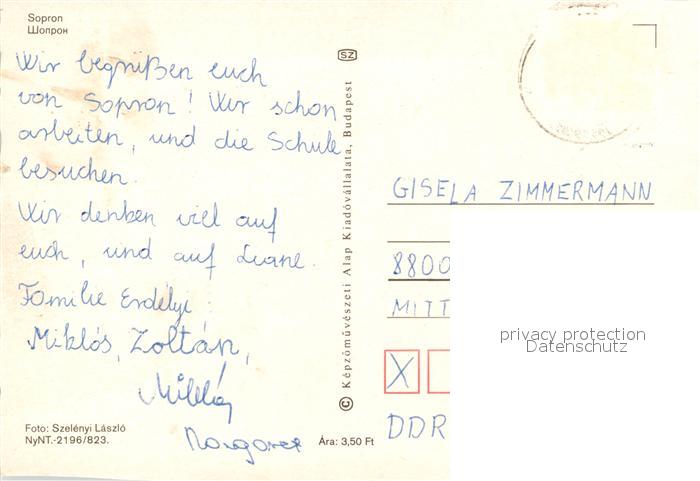 Sopron
Шопрон
Wir begrüßen euch
von Sopron! Wir schon
arbeiten, und die Schule
besuchen.
Wir denken viel auf
euch, und auf Liane.
Familie Erdélyi:
Miklós, Zoltán,
Miklós
Margaret
Foto: Szelényi László
NyNT.-2196/823.
Ára: 3,50 Ft
SZ
© Képzőművészeti Alap Kiadóvállalata, Budapest
GISELA ZIMMERMANN
8800
MITT
X
DDR
privacy protection
Datenschutz